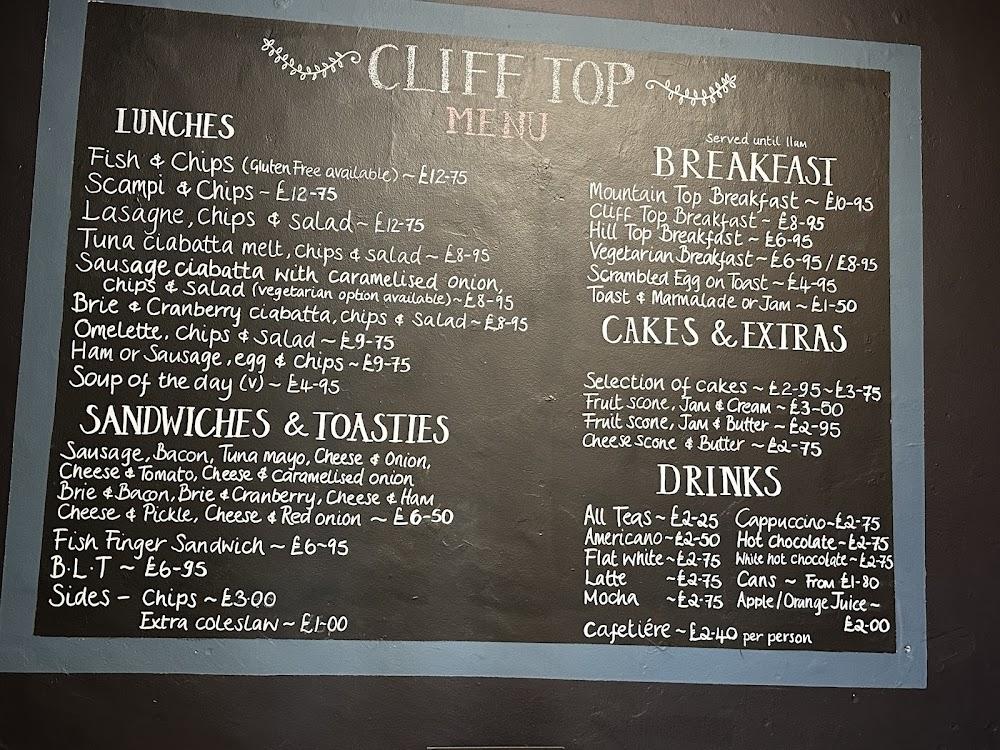 CLIFF TOP
MENU
LUNCHES
Fish & Chips (Gluten Free available) ~ £12-75
Scampi & Chips ~ £12-75
Lasagne, chips & salad ~ £12-75
Tuna ciabatta melt, chips & salad ~ £8-95
Sausage ciabatta with caramelised onion,
chips & salad (vegetarian option available) ~ £8-95
Brie & Cranberry ciabatta, chips & salad ~ £8-95
Omelette, chips & salad ~ £9-75
Ham or Sausage, egg & chips ~ £9-75
Soup of the day (v) ~ £4-95
SANDWICHES & TOASTIES
Sausage, Bacon, Tuna mayo, Cheese & Onion,
Cheese & Tomato, Cheese & caramelised onion
Brie & Bacon, Brie & Cranberry, Cheese & Ham
Cheese & Pickle, Cheese & Red onion ~ £6-50
Fish Finger Sandwich ~ £6-95
B.L.T ~ £6-95
Sides - Chips ~ £3.00
Extra coleslaw ~ £1-00
Served until 11am
BREAKFAST
Mountain Top Breakfast ~ £10-95
Cliff Top Breakfast ~ £8-95
Hill Top Breakfast ~ £6-95
Vegetarian Breakfast ~ £6-95 / £8-95
Scrambled Egg on Toast ~ £4-95
Toast & Marmalade or Jam ~ £1-50
CAKES & EXTRAS
Selection of cakes ~ £2-95 ~ £3-75
Fruit scone, Jam & Cream ~ £3-50
Fruit scone, Jam & Butter ~ £2-95
Cheese scone & Butter ~ £2-75
DRINKS
All Teas ~ £2-25
Americano ~ £2-50
Flat white ~ £2-75
Latte ~ £2-75
Mocha ~ £2-75
Cafetiére ~ £2-40 per person
Cappuccino ~ £2-75
Hot chocolate ~ £2-75
White hot chocolate ~ £2-75
Cans ~ From £1-80
Apple/Orange Juice ~
£2-00